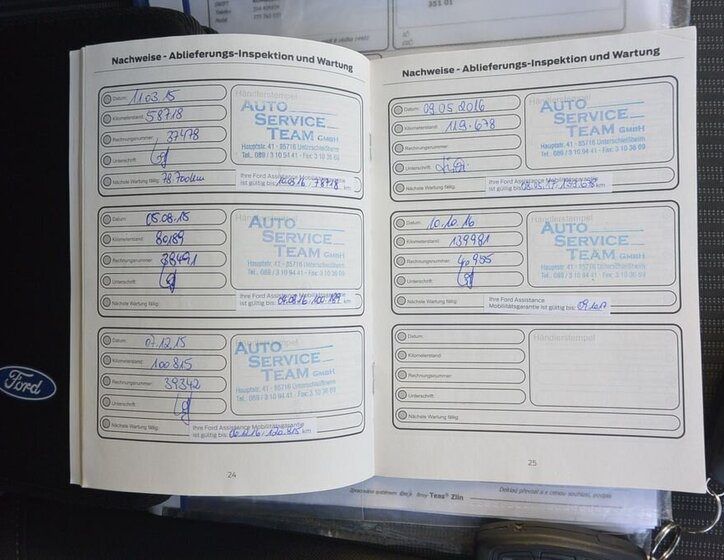 351 01
Nachweise - Ablieferungs-Inspektion und Wartung
Datum: 11.03.15
Kilometerstand: 58718
Rechnungsnummer: 37478
Unterschrift:
Nächste Wartung fällig: 78700km
Händlerstempel
AUTO
SERVICE
TEAM GMBH
Hauptstr. 41 - 85716 Unterschleißheim
Tel.: 089 / 3 10 54 41 - Fax: 3 10 36 69
Ihre Ford Assistance Mobilitätsgarantie
ist gültig bis: 10.03.16, 78718 km
Datum: 05.08.15
Kilometerstand: 80189
Rechnungsnummer: 38491
Unterschrift:
Nächste Wartung fällig:
AUTO
SERVICE
TEAM GMBH
Hauptstr. 41 - 85716 Unterschleißheim
Ihre Ford Assistance Mobilitätsgarantie
ist gültig bis: 04.08.16, 100.189 km
Datum: 07.12.15
Kilometerstand: 100815
Rechnungsnummer: 39342
Unterschrift:
Nächste Wartung fällig:
AUTO
SERVICE
TEAM GMBH
Hauptstr. 41 - 85716 Unterschleißheim
Ihre Ford Assistance Mobilitätsgarantie
ist gültig bis: 06.12.16, 120.815 km
24
Nachweise - Ablieferungs-Inspektion und Wartung
Datum: 09.05.2016
Kilometerstand: 119.678
Rechnungsnummer:
Unterschrift:
Nächste Wartung fällig:
AUTO
SERVICE
TEAM GMBH
Hauptstr. 41 - 85716 Unterschleißheim
Ihre Ford Assistance Mobilitätsgarantie
ist gültig bis: 08.05.17, 139.678 km
Datum: 10.10.16
Kilometerstand: 139981
Rechnungsnummer: 40955
Unterschrift:
Nächste Wartung fällig:
AUTO
SERVICE
TEAM GMBH
Hauptstr. 41 - 85716 Unterschleißheim
Ihre Ford Assistance
Mobilitätsgarantie ist gültig bis: 09.10.17
Datum:
Kilometerstand:
Rechnungsnummer:
Unterschrift:
Nächste Wartung fällig:
Händlerstempel
25
Ford
firmy Teas® Zlín